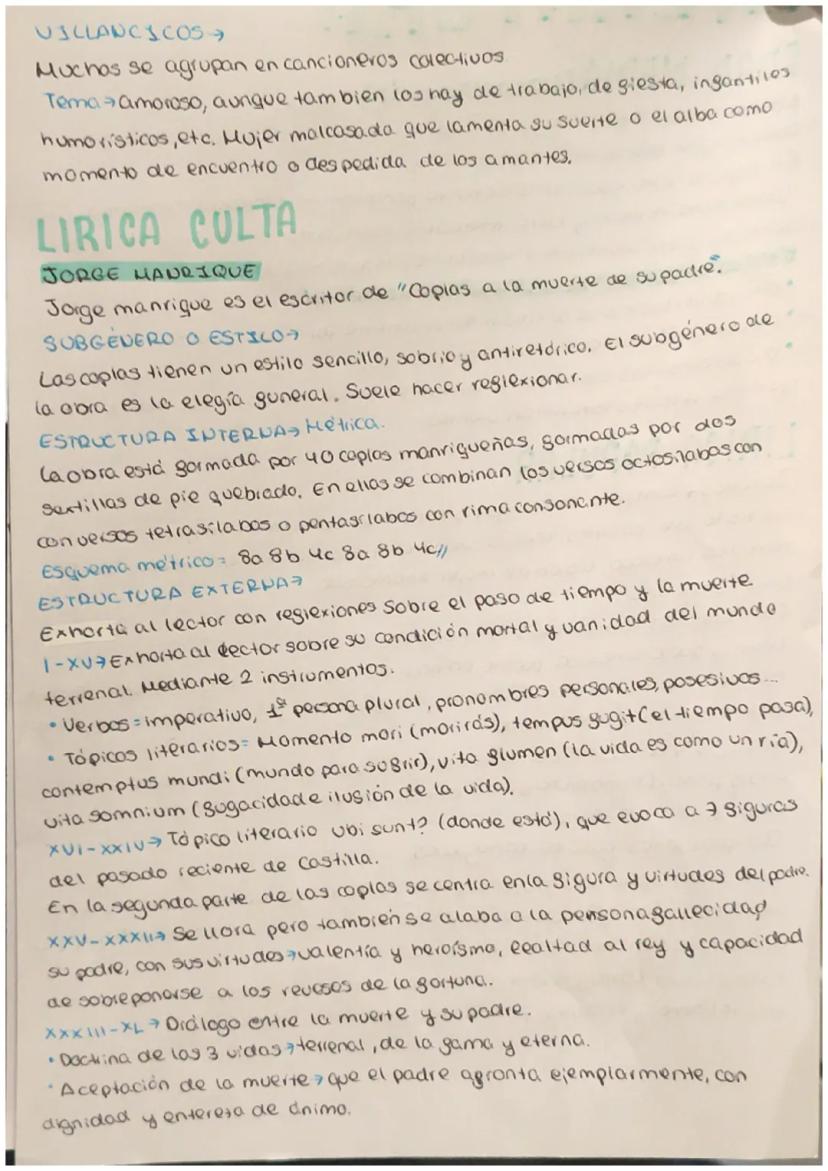 VILLANCICOS →
Muchos se agrupan en cancioneros colectivos
Tema → amoroso, aunque tambien los hay de trabajo, de fiesta, infantiles
humorísticos, etc. Mujer malcasada que lamenta su suerte o el alba como
momento de encuentro o despedida de los amantes.
LIRICA CULTA
JORGE MANRIQUE
Jorge manrique es el escritor de "Coplas a la muerte de su padre".
SUBGÉNERO O ESTILO →
Las coplas tienen un estilo sencillo, sobrio y antiretórico. El subgénero de
la obra es la elegía funeral. Suele hacer reflexionar.
ESTRUCTURA INTERNA → Métrica.
La obra está formada por 40 coplas manriqueñas, formadas por dos
sextillas de pie quebrado. En ellas se combinan los versos octosílabas con
con versos tetrasílabos o pentasílabos con rima consonante.
Esquema métrico = 8a 8b 4c 8a 8b 4c //
ESTRUCTURA EXTERNA →
Exhorta al lector con reflexiones sobre el paso de tiempo y la muerte
I-XV → Exhorta al lector sobre su condición mortal y vanidad del mundo
terrenal. Mediante 2 instrumentos.
• Verbos = imperativo, 1ª persona plural, pronombres personales, posesivos...
• Tópicos literarios = Momento mori (morirás), tempus fugit (el tiempo pasa),
contemptus mundi (mundo para sufrir), vita flumen (la vida es como un ría),
vita somnium (fugacidad e ilusión de la vida).
XVI-XXIV → Tópico literario ubi sunt? (donde está), que evoca a 7 figuras
del pasado reciente de Castilla.
En la segunda parte de las coplas se centra en la figura y virtudes del padre.
XXV-XXXII → Se llora pero también se alaba a la persona fallecidad
su padre, con sus virtudes → valentía y heroísmo, lealtad al rey y capacidad
de sobreponerse a los reveses de la fortuna.
XXXIII-XL → Diálogo entre la muerte y su padre.
• Doctrina de las 3 vidas → terrenal, de la fama y eterna.
• Aceptación de la muerte → que el padre afronta ejemplarmente, con
dignidad y entereza de ánimo.